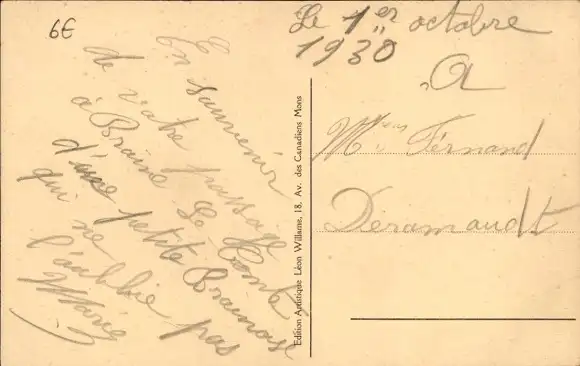 6E
En souvenir
de votre passage
à Braine Le Comte
d'une petite Brainoise
qui ne l'oublie pas
Marie
Edition Artistique Léon Willame, 18, Av. des Canadiens Mons
Le 1er octobre
1930
A
Mr Fernand
Deramaudt